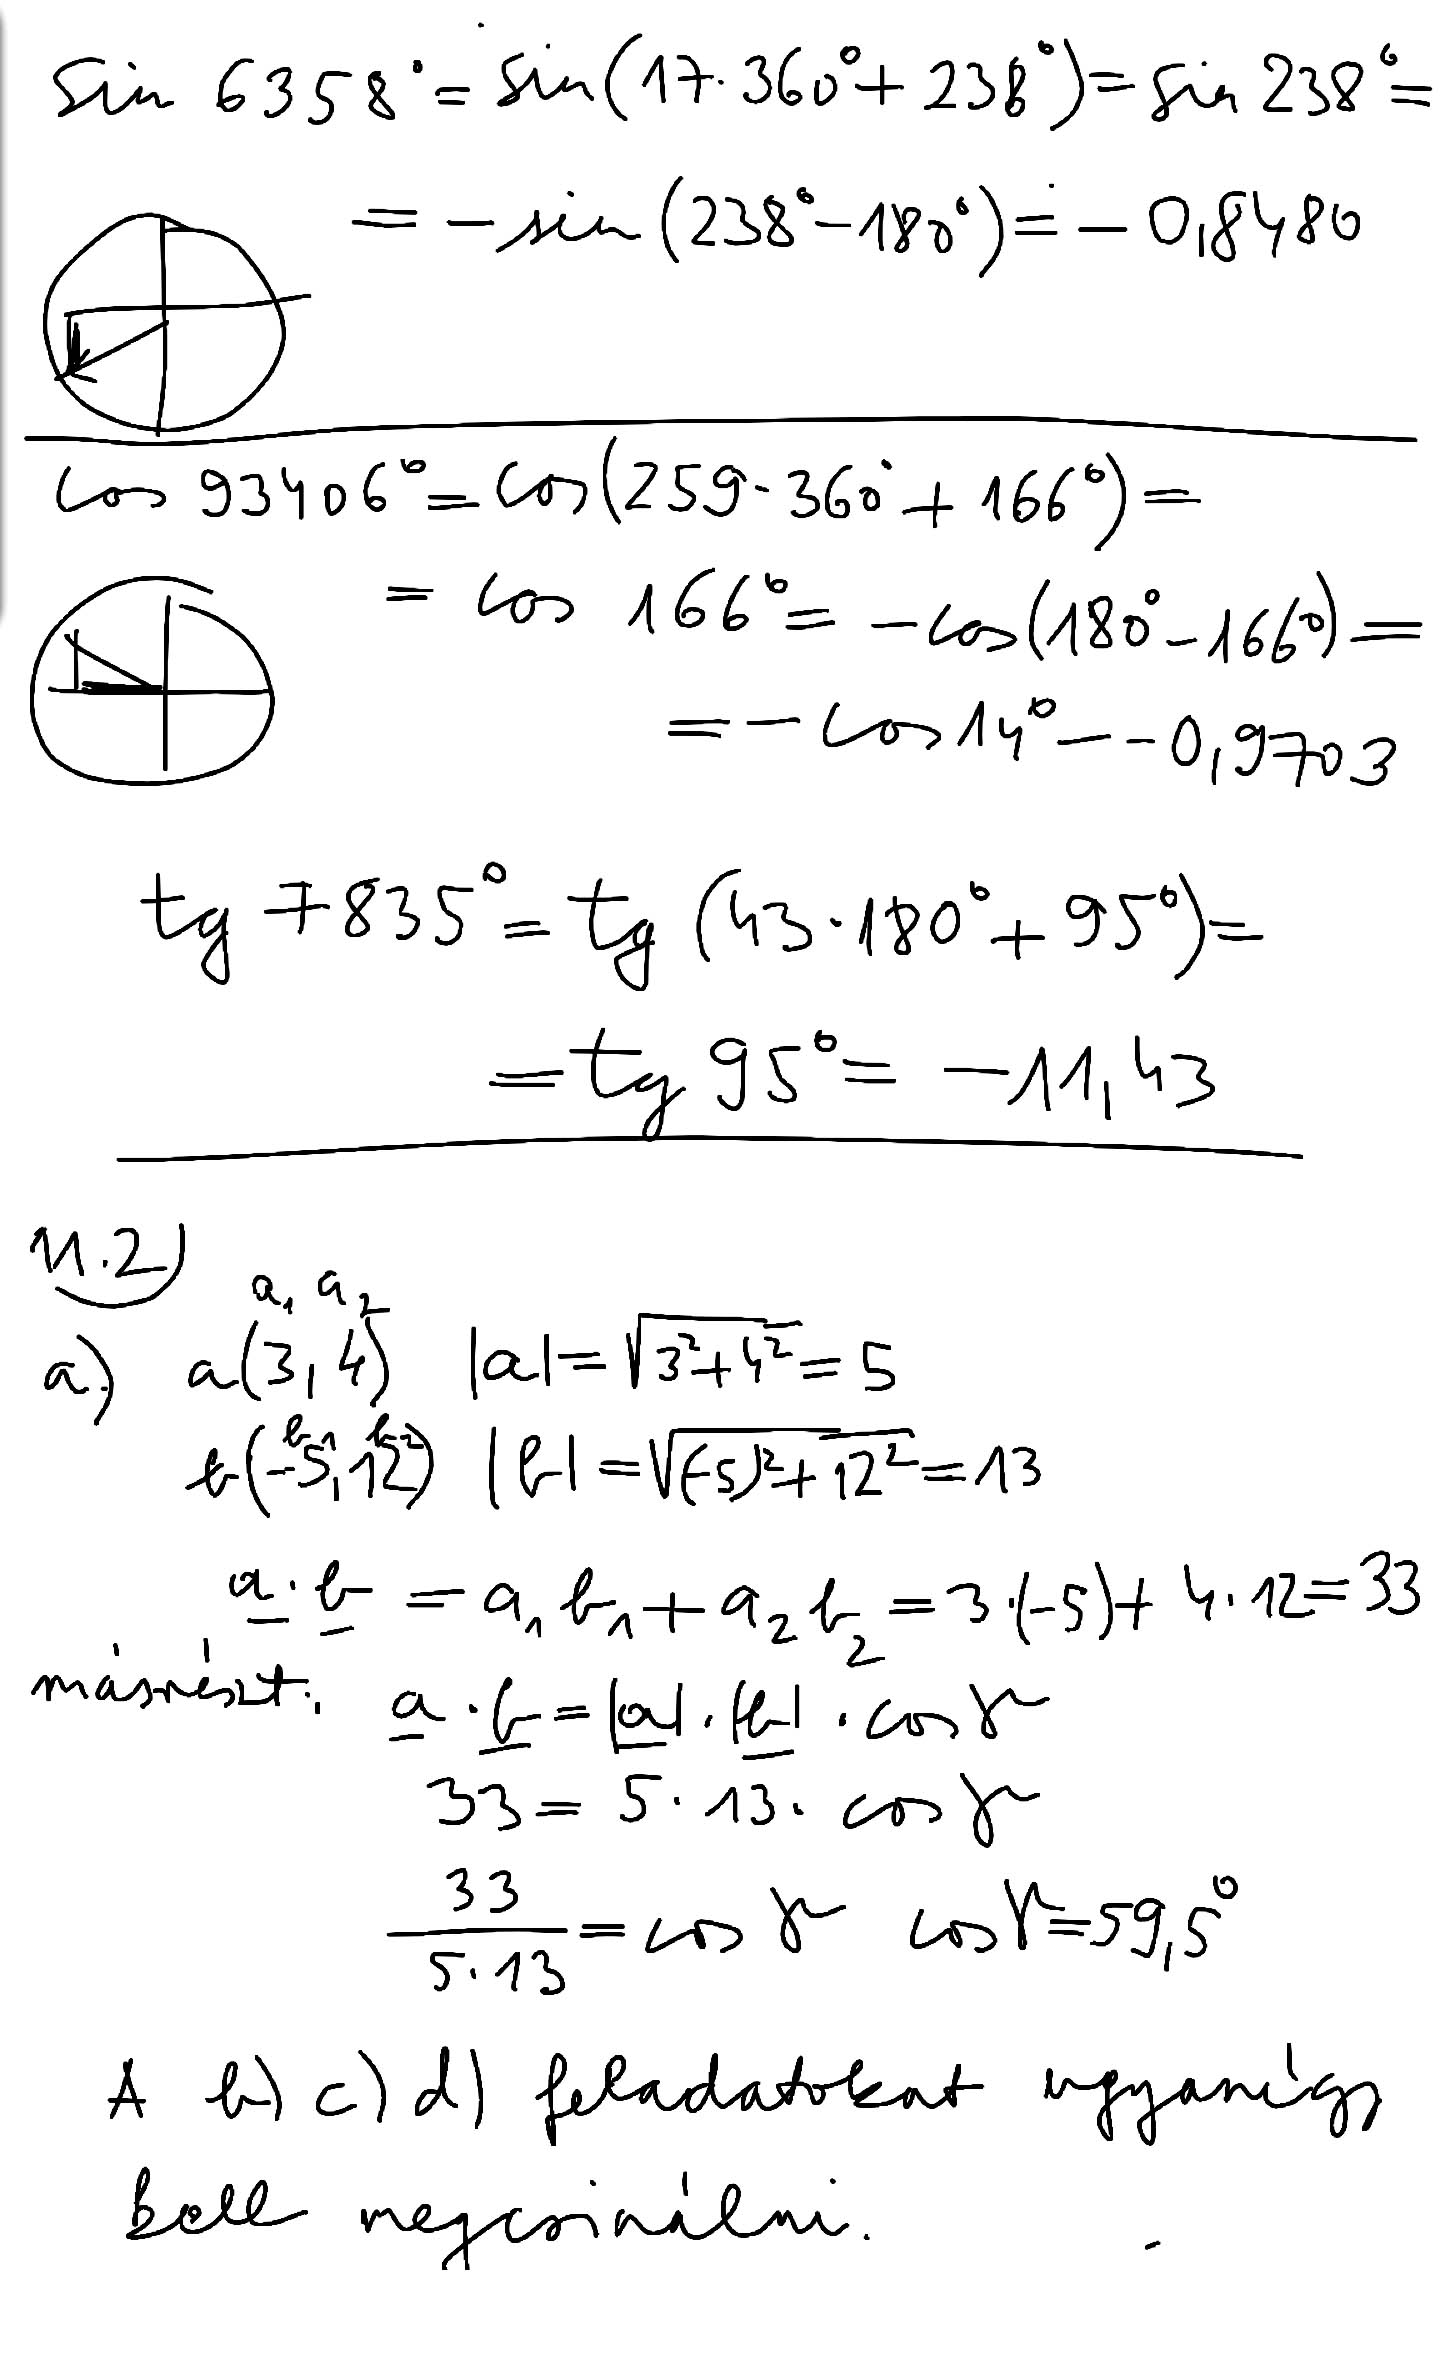 sin 6358° = sin(17·360° + 238°) = sin 238° =
= -sin(238° - 180°) = -0,8480
cos 93406° = cos(259·360° + 166°) =
= cos 166° = -cos(180° - 166°) =
= -cos 14° - -0,9703
tg 7835° = tg(43·180° + 95°) =
= tg 95° = -11,43
11.2)
a₁ a₂
a) a(3,4) |a| = √3²+4² = 5
b₁ b₂
b(-5,12) |b| = √(-5)²+12² = 13
a·b = a₁b₁ + a₂b₂ = 3·(-5) + 4·12 = 33
másrészt: a·b = |a|·|b|·cos γ
33 = 5·13·cos γ
33/5·13 = cos γ cos γ = 59,5°
A b) c) d) feladatokat ugyanígy
kell megcsinálni.